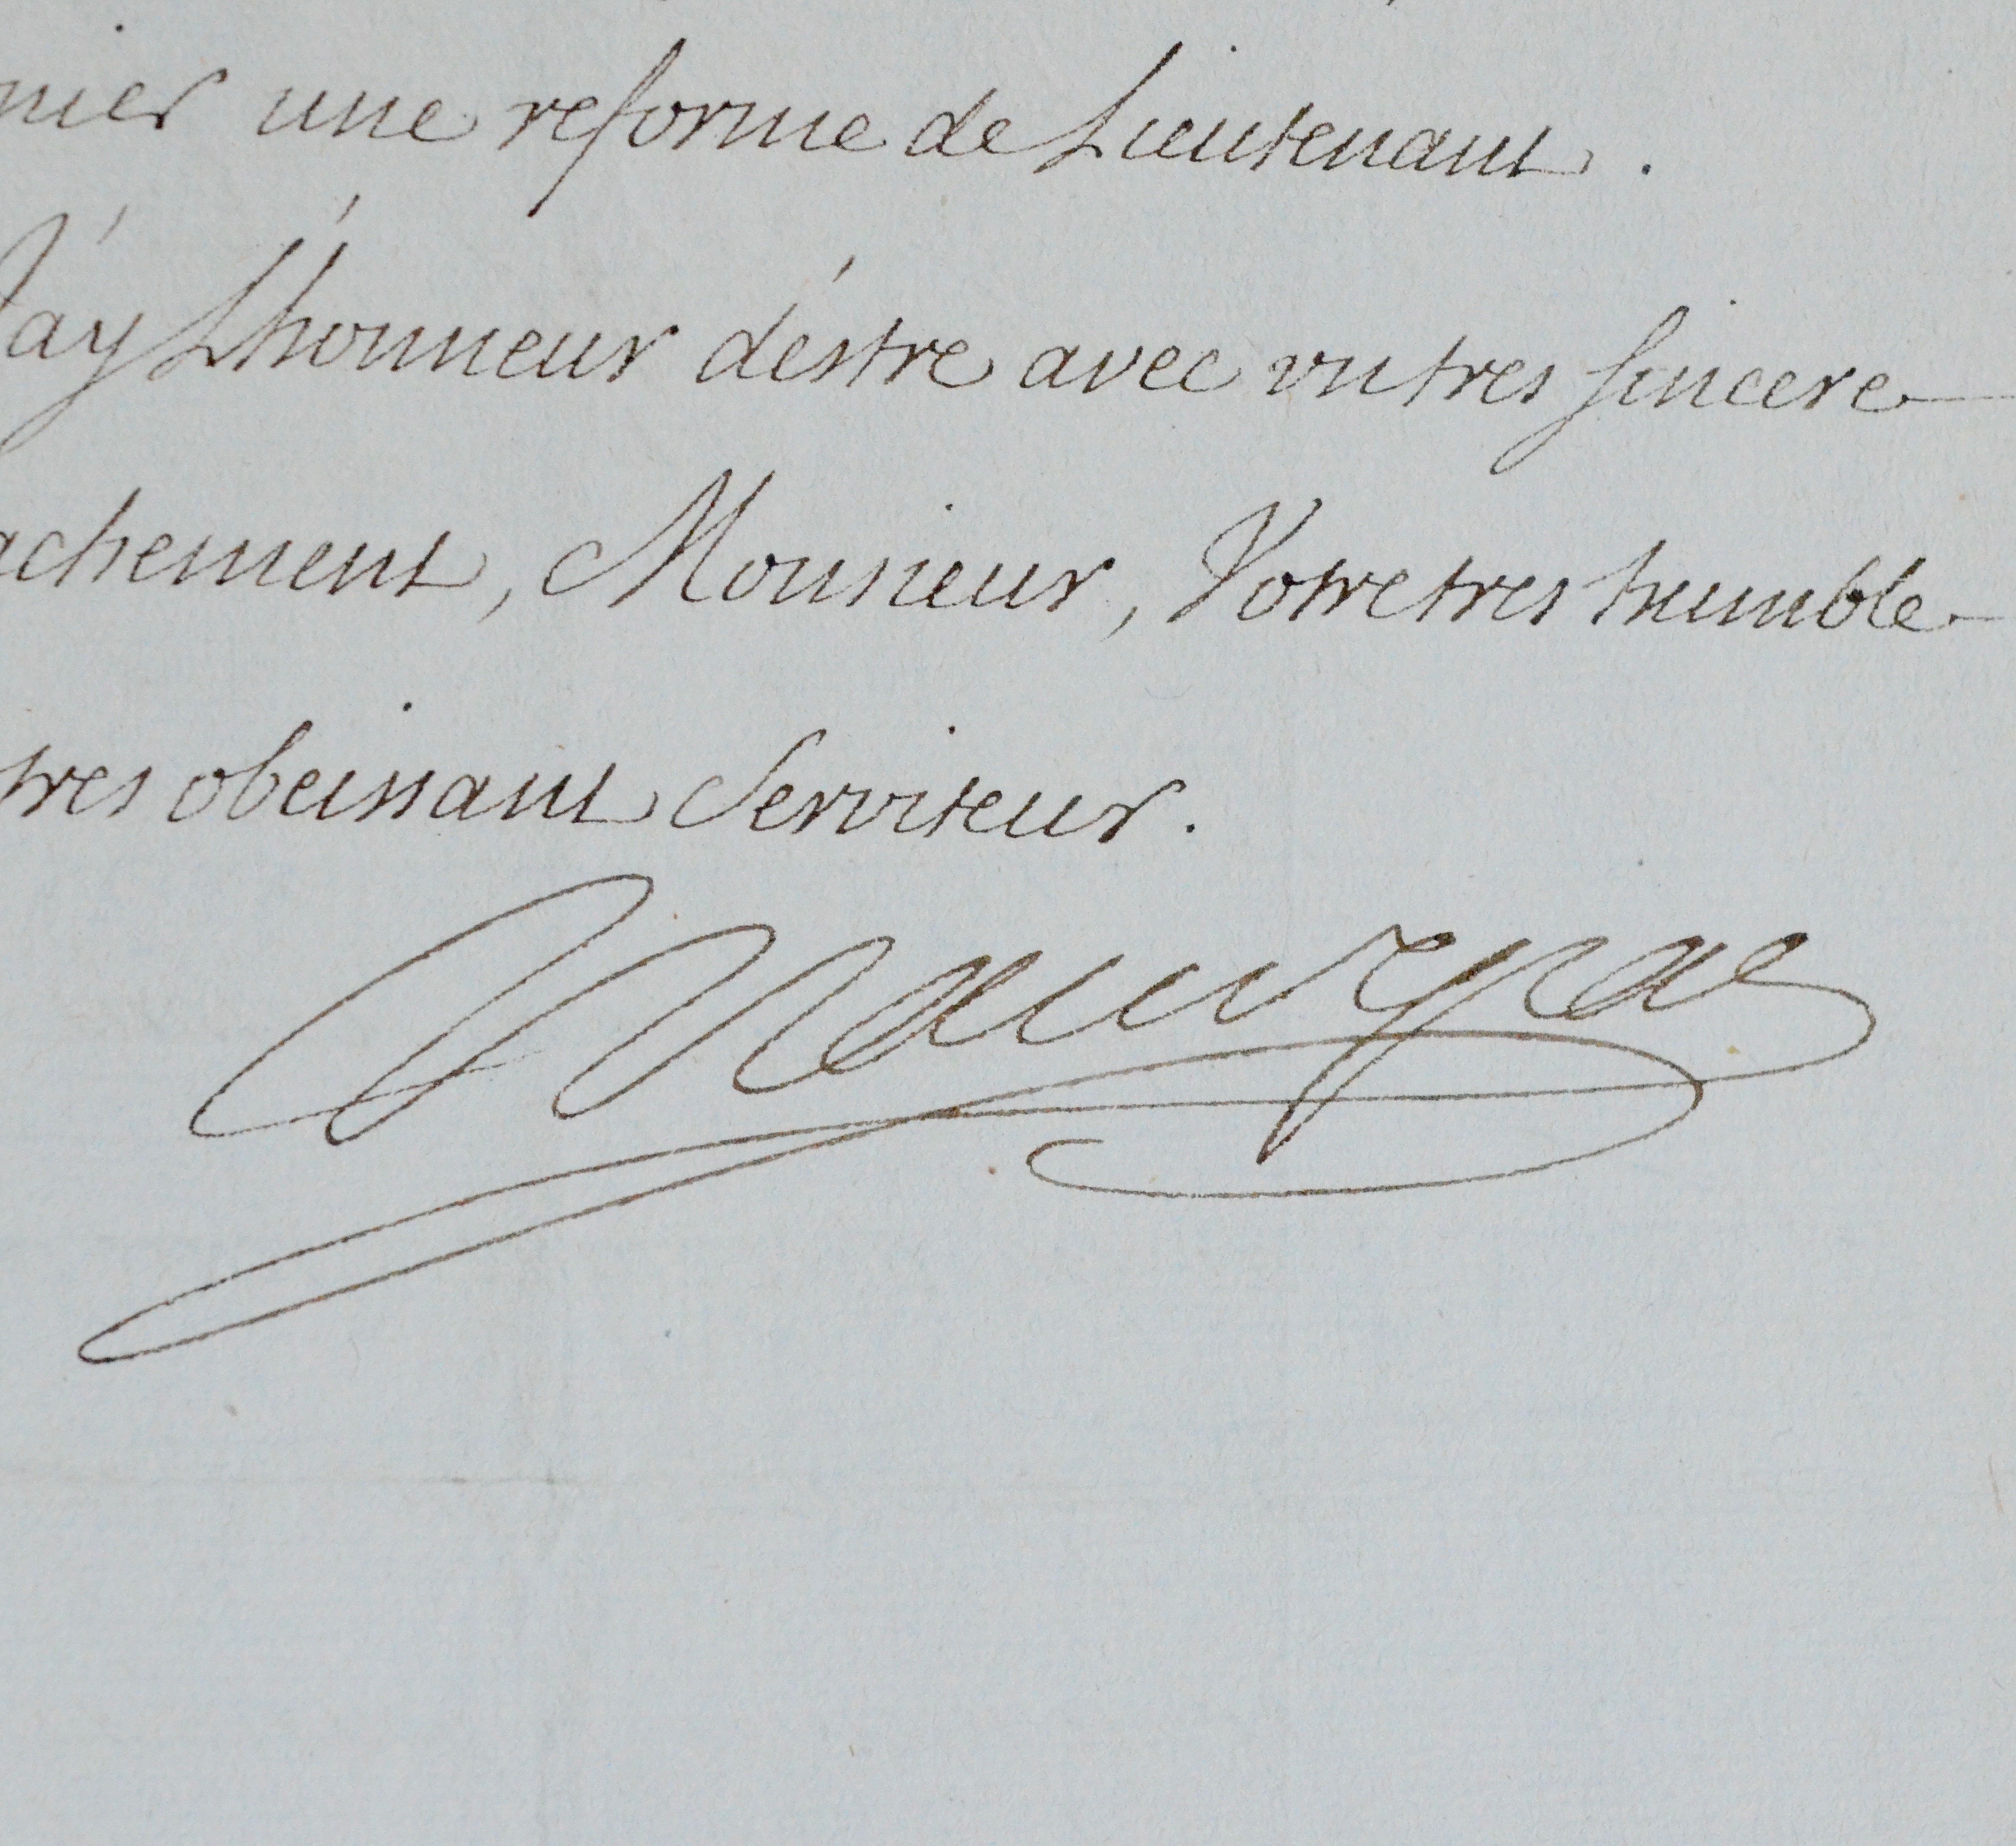 nier une reforme de Lieutenant.
J'ay L'honneur d'estre avec un tres sincere
achement, Monsieur, Votre tres humble
tres obeissant Serviteur.
Maurepas